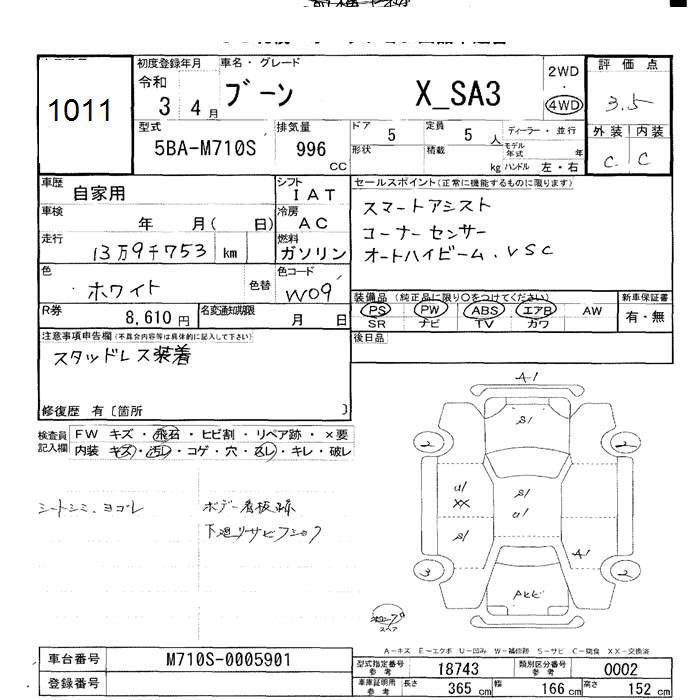 1011
初度登録年月
令和
3 4月
車名・グレード
ブーン X_SA3
2WD
・
4WD
評価点
3.5
外装 内装
C C
型式
5BA-M710S
排気量
996
CC
ドア 5
定員 5 人
形状
積載 kg
ディーラー・並行
モデル年式 年
ハンドル 左・右
車歴
自家用
シフト
IAT
車検
年 月( 日)
冷房
AC
走行
13万9千753 km
燃料
ガソリン
色
ホワイト
色替
色コード
W09
R券
8,610円
名変通知期限
月 日
セールスポイント(正常に機能するものに限ります)
スマートアシスト
コーナーセンサー
オートハイビーム、VSC
装備品(純正品に限り○をつけてください)
PS PW ABS エアB AW
SR ナビ TV カワ
新車保証書
有・無
後日品
注意事項申告欄(不具合内容等は具体的に記入して下さい)
スタッドレス装着
修復歴 有〔箇所 〕
検査員記入欄
FW キズ・飛石・ヒビ割・リペア跡・×要
内装 キズ・汚レ・コゲ・穴・スレ・キレ・破レ
シートシミ、ヨゴレ
ボデー看板跡
下廻リサビフショク
A1
S1
2
2
U1
XX
S1
U1
S1
A1
3
2
スペア
A-キズ E-エクボ U-凹み W-補修跡 S-サビ C-腐食 XX-交換済
車台番号
M710S-0005901
登録番号
型式指定番号
参考
18743
類別区分番号
参考
0002
車庫証明用
参考
長さ 365 cm
幅 166 cm
高さ 152 cm